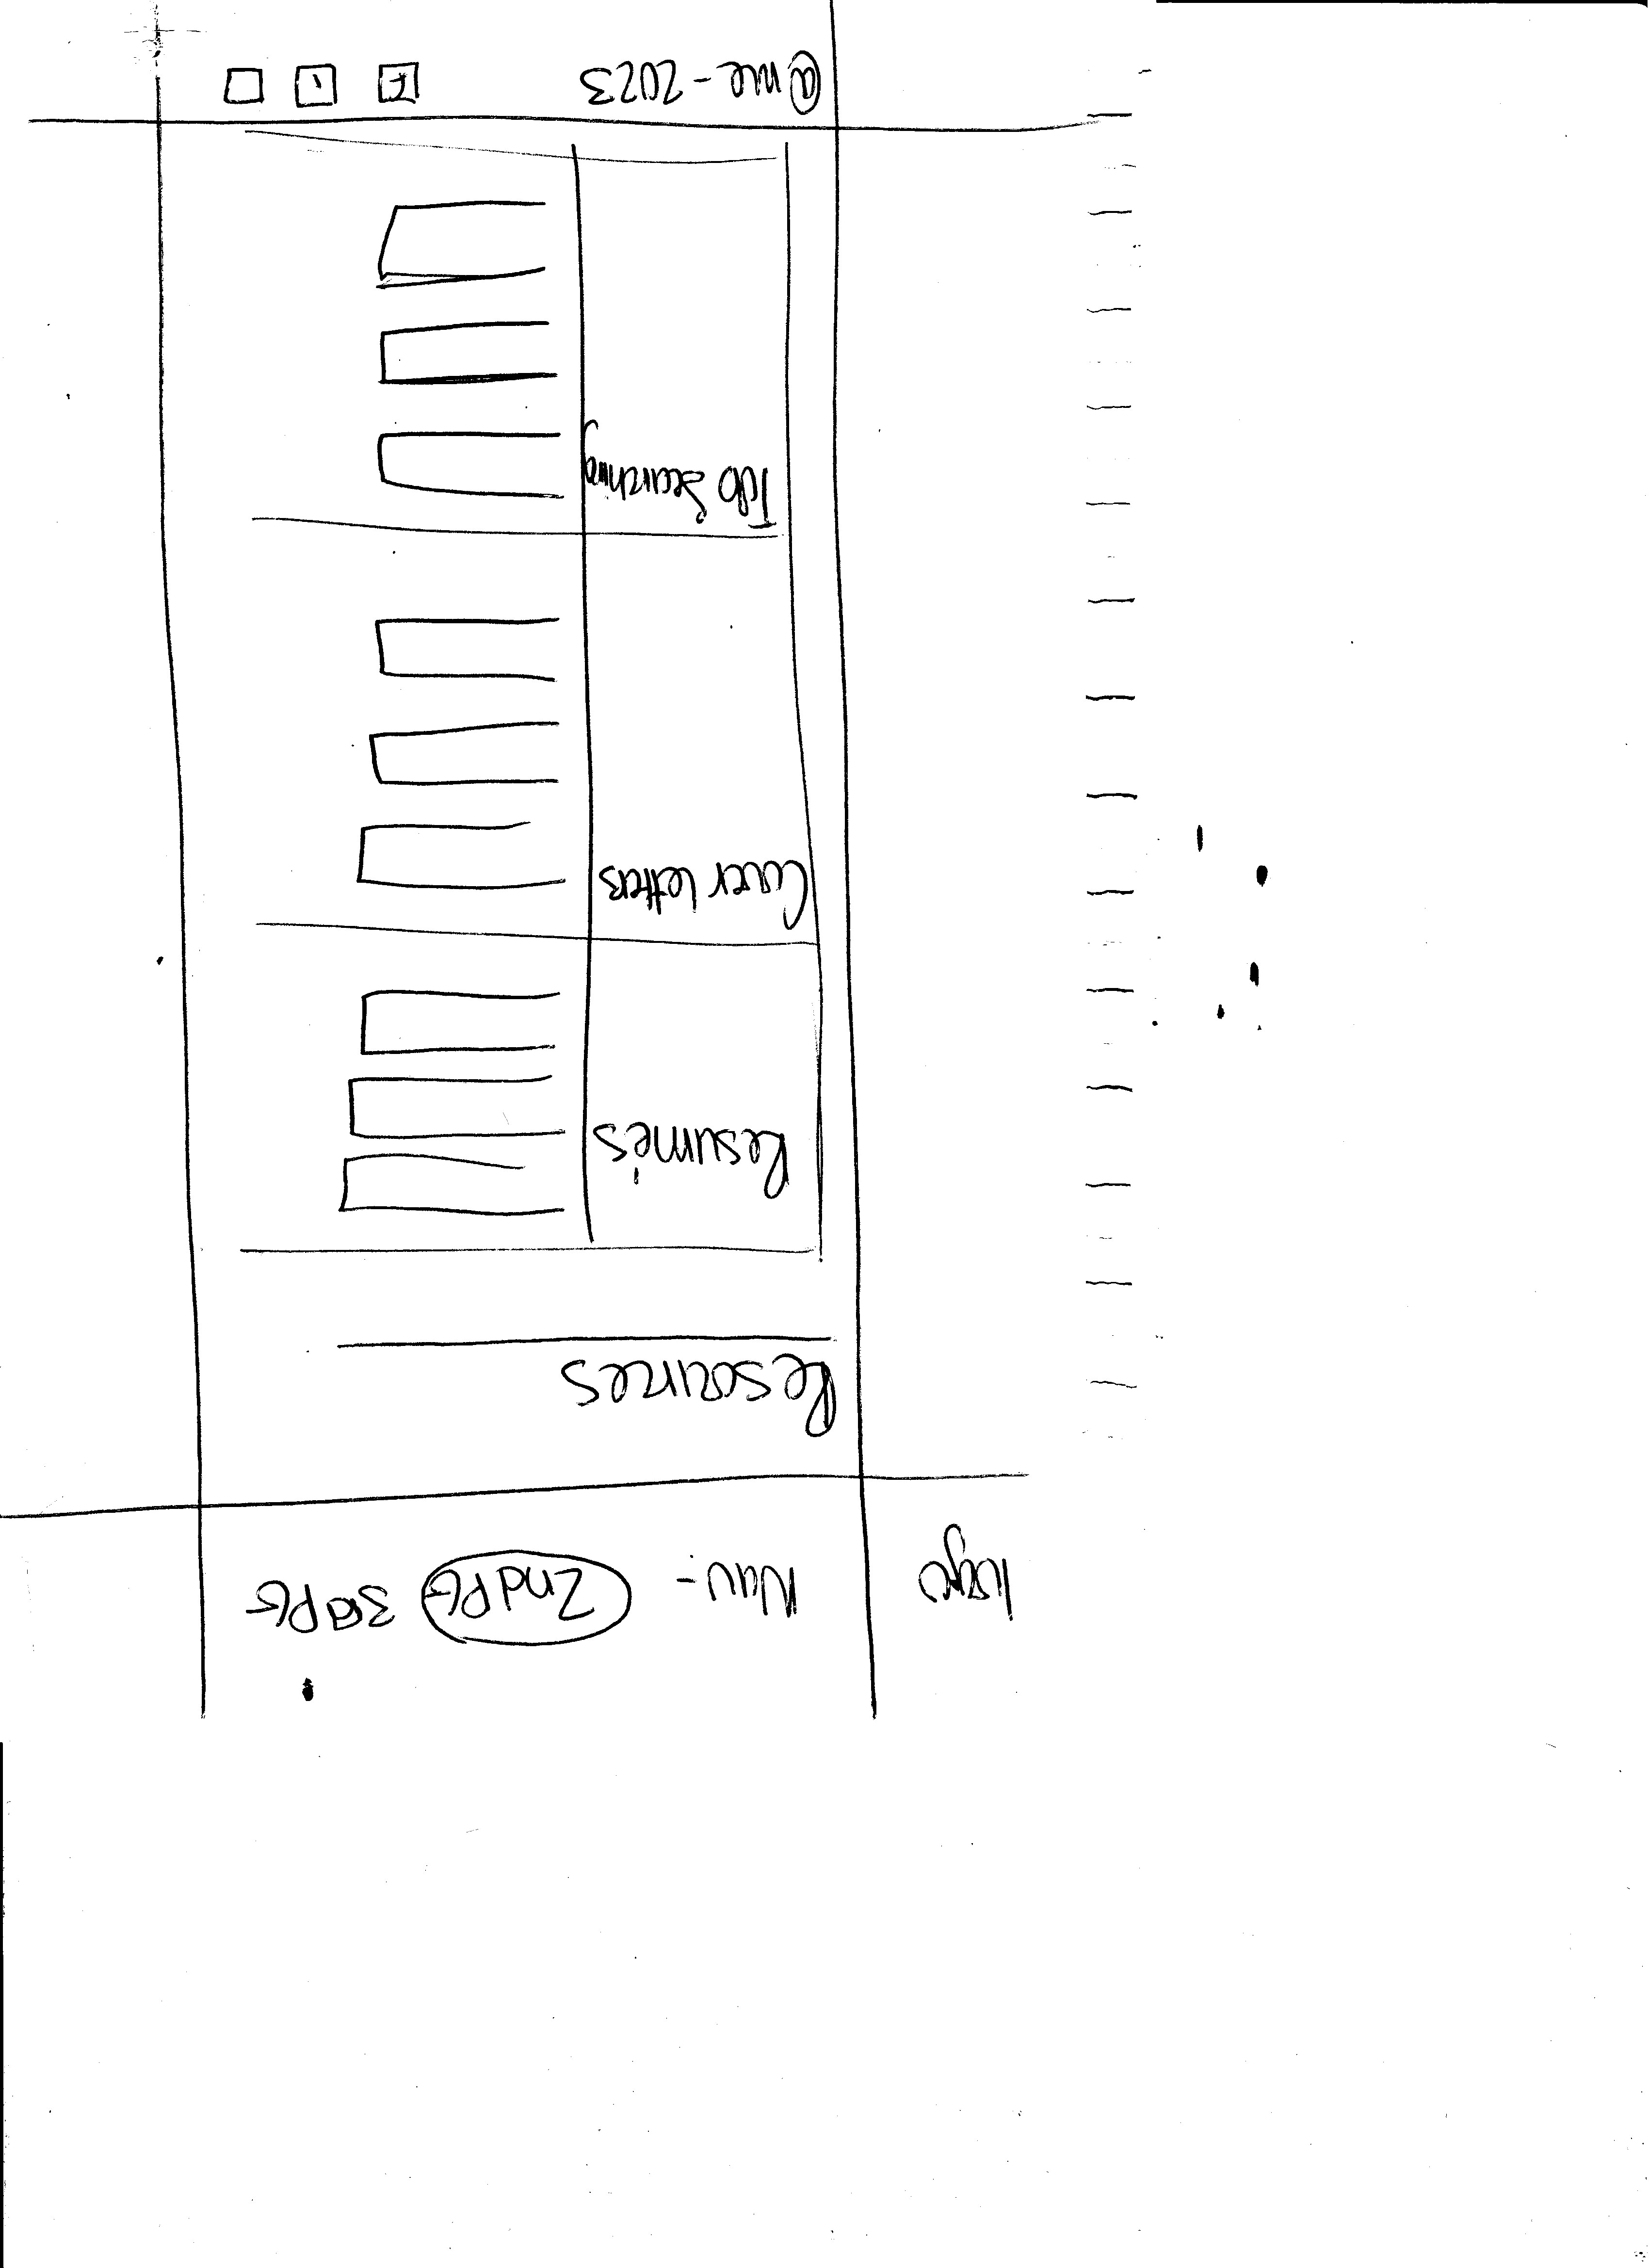 Logo Nav - 2nd PG 3rd PG
Resources
Resumés
Cover Letters
Job Searching
@me - 2023 F